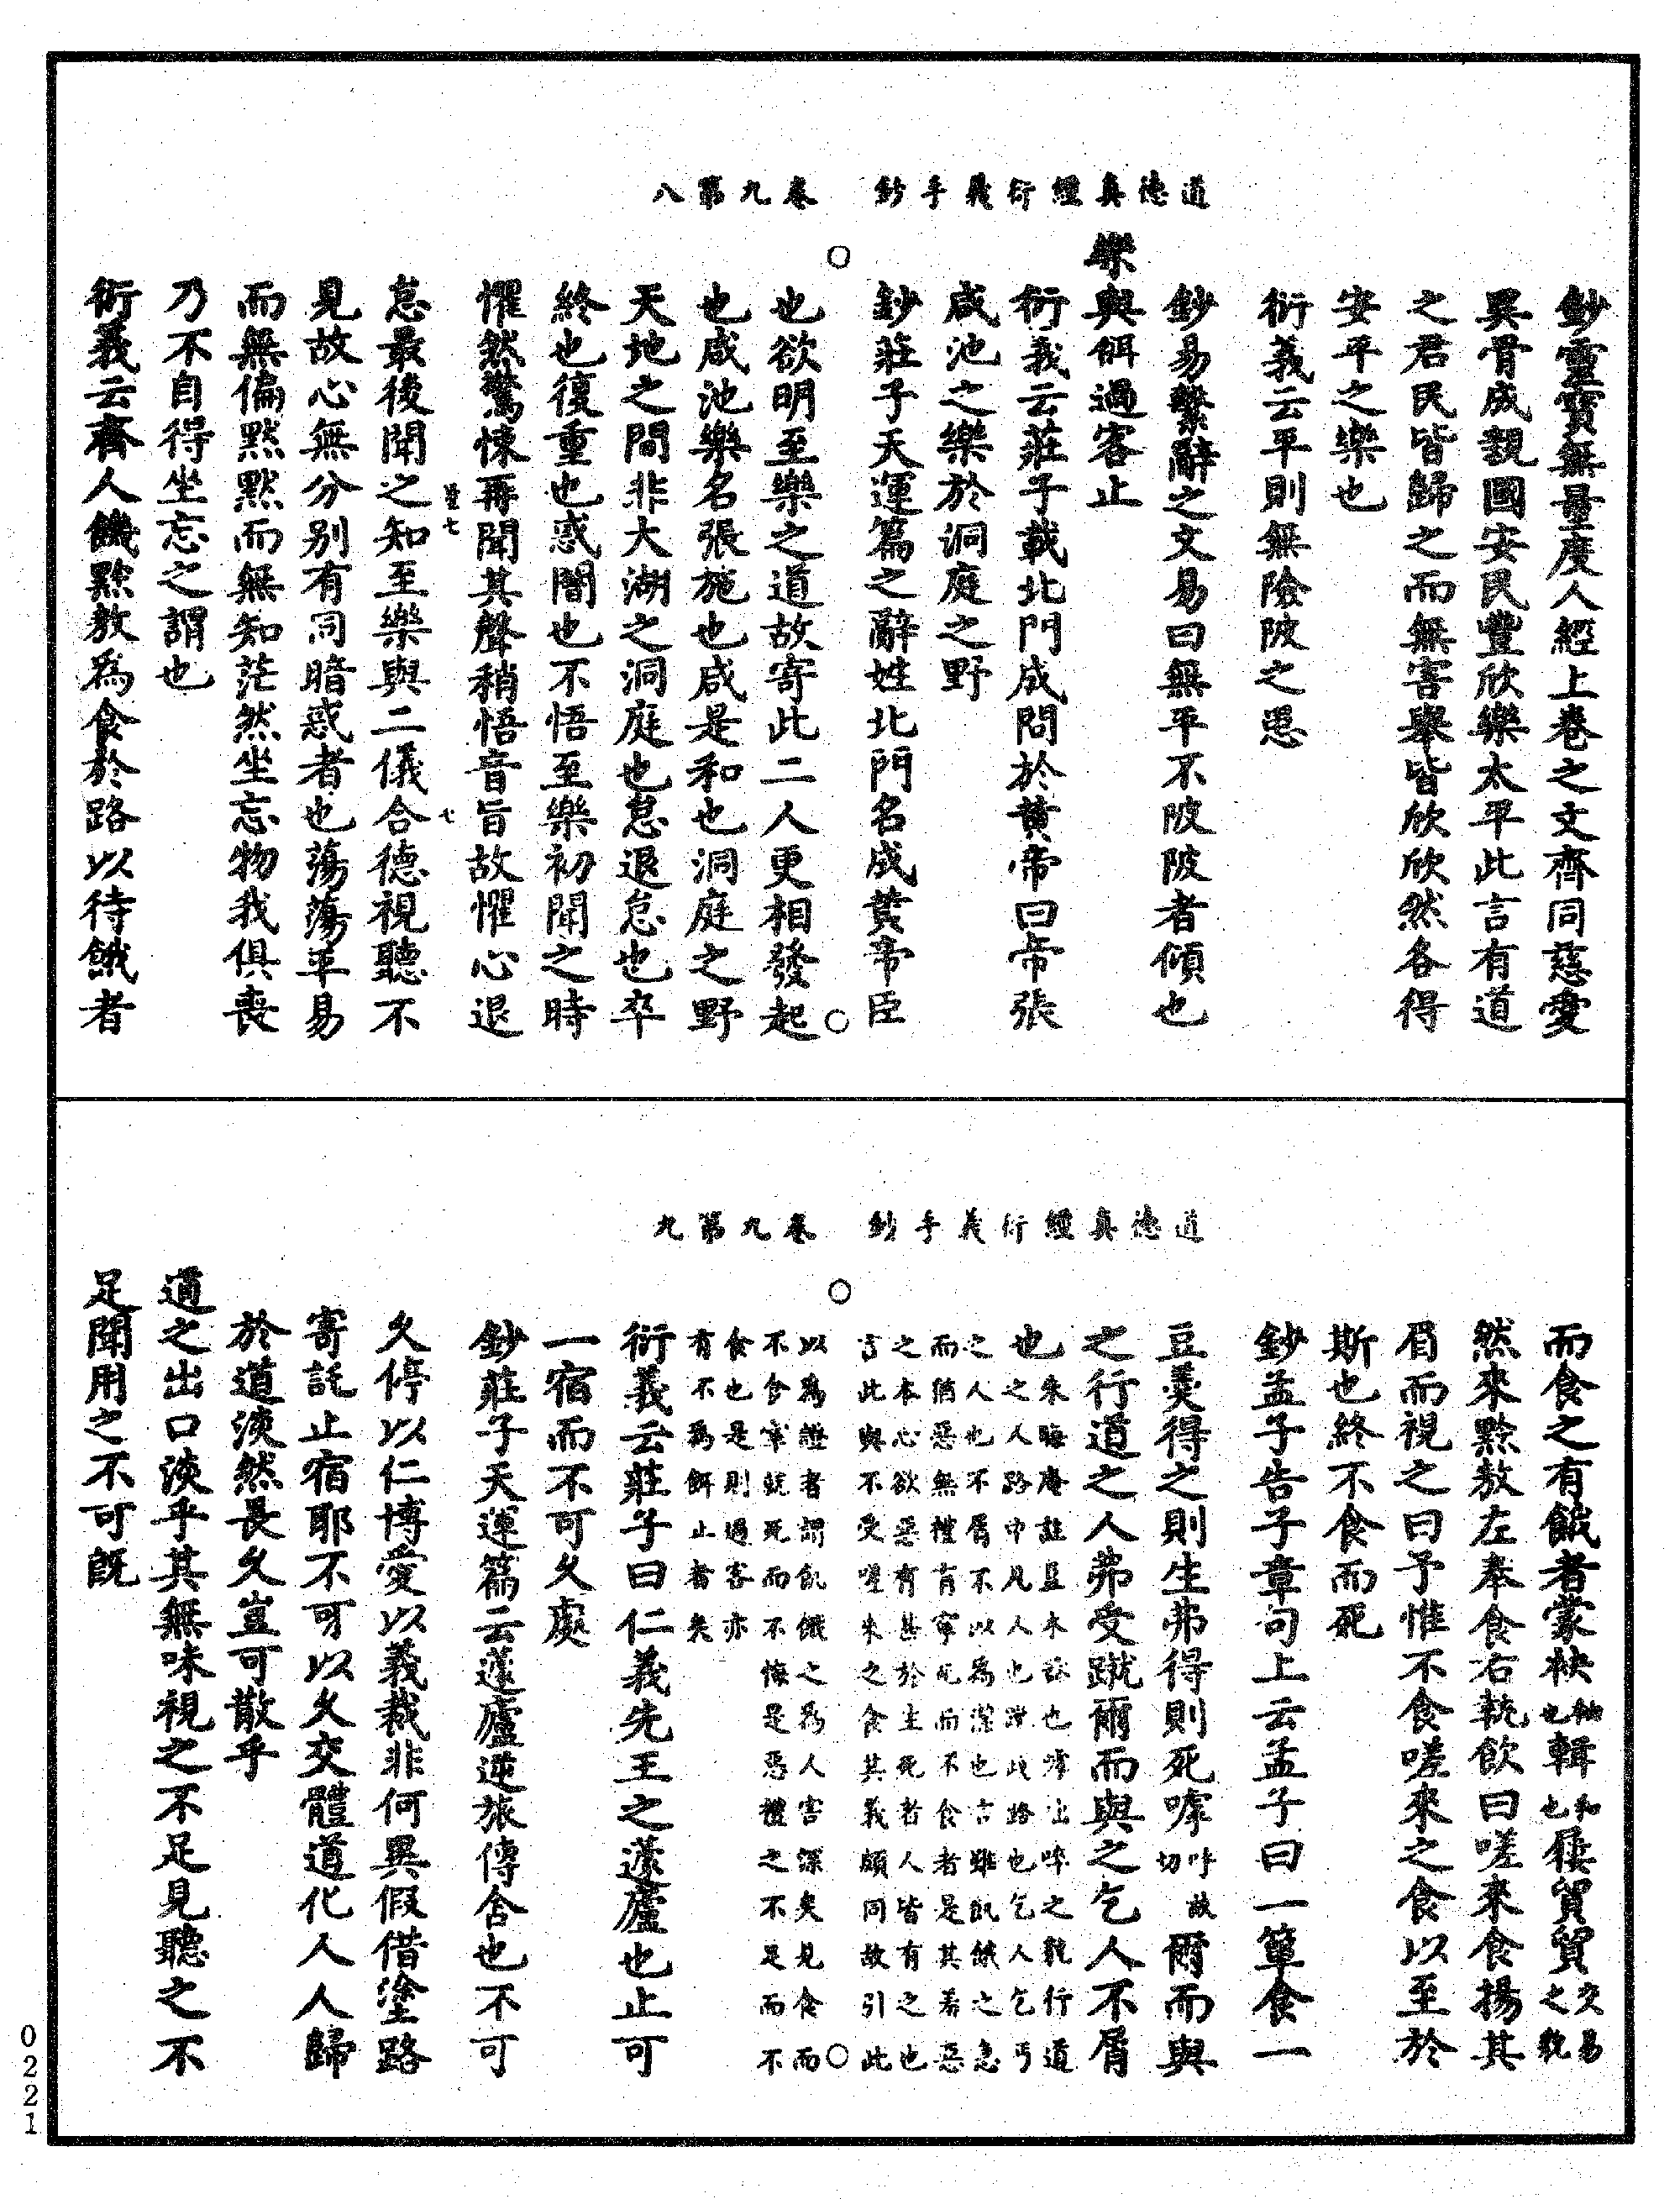 道德真經衍義手鈔　卷九第八
鈔靈寶無量度人經上卷之文齊同慈愛
異骨成親國安民豐欣樂太平此言有道
之君民皆歸之而無害舉皆欣欣然各得
安平之樂也
衍義云平則無險陂之患
鈔易繫辭之文易曰無平不陂陂者傾也
樂與餌過客止
衍義云莊子載北門成問於黄帝曰帝張
咸池之樂於洞庭之野
鈔莊子天運篇之辭姓北門名成黄帝臣
也欲明至樂之道故寄此二人更相發起
也咸池樂名張施也咸是和也洞庭之野
天地之間非大湖之洞庭也怠退怠也卒
終也復重也惑闇也不悟至樂初聞之時
懼然驚悚再聞其聲稍悟音旨故懼心退
七
七
怠最後聞之知至樂與二儀合德視聽不
見故心無分别有同暗惑者也蕩蕩平易
而無偏默默而無知茫然坐忘物我俱喪
乃不自得坐忘之謂也
衍義云齊人饑黔敖為食於路以待餓者
道德真經衍義手鈔　卷九第九
而食之有餓者蒙袂袖也輯和也屨貿貿交易之貌
然來黔敖左奉食右執飲曰嗟來食揚其
眉而視之曰予惟不食嗟來之食以至於
斯也終不食而死
鈔孟子告子章句上云孟子曰一簞食一
豆羹得之則生弗得則死嘑呼故切爾而與
之行道之人弗受蹴爾而與之乞人不屑
也朱晦庵註豆木也嘑咄啐之貌行道
之人路中凡人也蹴踐踏也乞人乞丐
之人也不屑不以為潔也言雖飢餓之急
而猶惡無禮有寧死而不食者是其羞惡
之本心欲惡有甚於生死者人皆有之也
言此與不受嗟來之食其義頗同故引此
以為證者謂飢餓之為人害深矣見食而
不食寧就死而不悔是惡禮之不足而不
食也是則過客亦
有不為餌止者矣
衍義云莊子曰仁義先王之蘧廬也止可
一宿而不可久處
鈔莊子天運篇云蘧廬逆旅傳舍也不可
久停以仁博愛以義裁非何異假借塗路
寄託止宿耶不可以久交體道化人人歸
於道淡然長久豈可散乎
道之出口淡乎其無味視之不足見聽之不
足聞用之不可既
0221